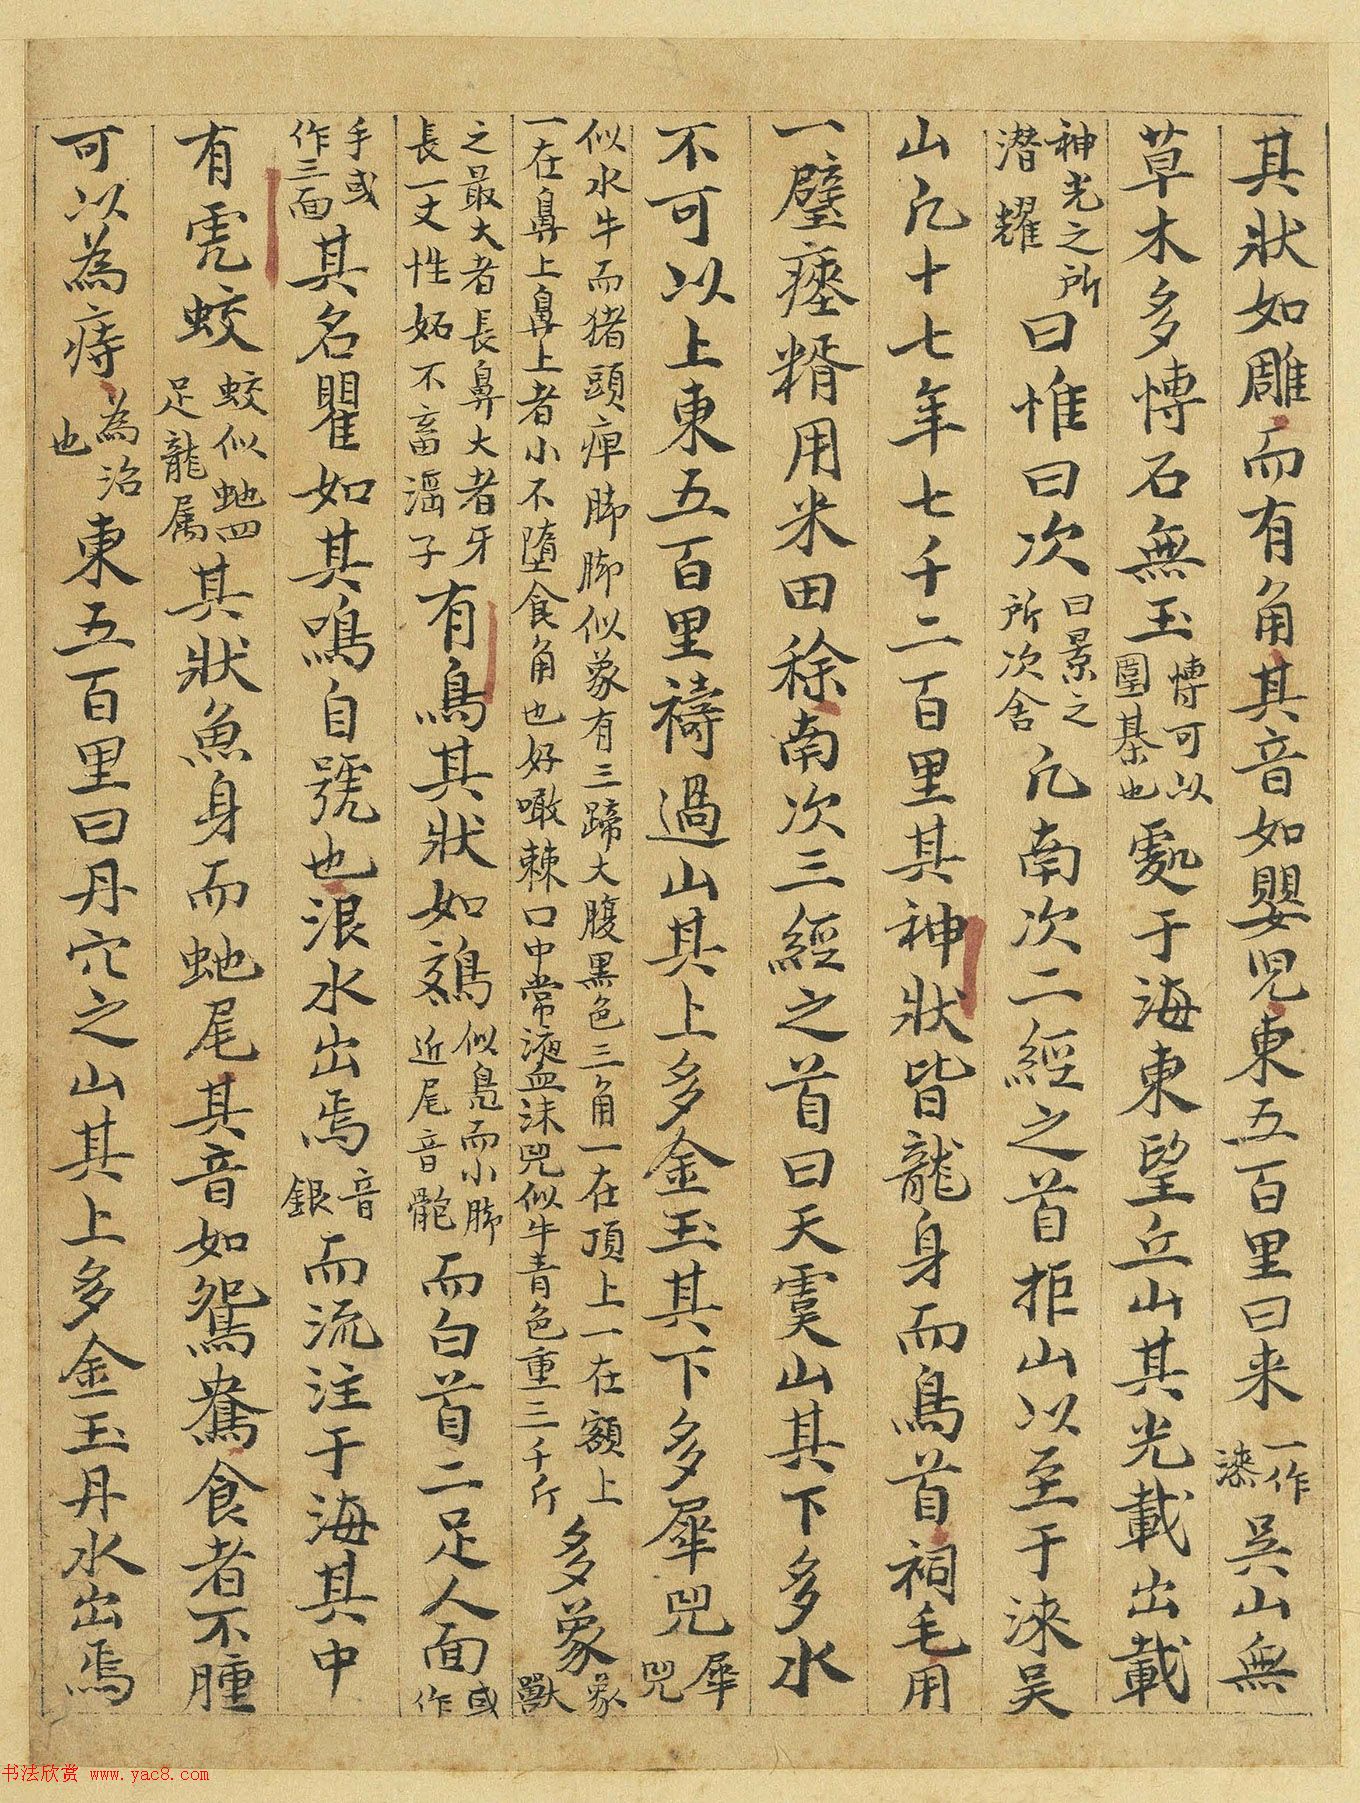 其狀如雕而有角其音如嬰児東五百里曰来一作漆吳山無
草木多博石無玉博可以圍棊也處于海東望丘山其光載出載
神光之所潛耀曰惟曰次日景之所次舍凡南次二經之首拒山以至于涞吴
山凡十七年七千二百里其神狀皆龍身而鳥首祠毛用
一璧瘞糈用米田稌南次三經之首曰天虞山其下多水
不可以上東五百里禱過山其上多金玉其下多犀兕犀兕
似水牛而猪頭痺脚脚似象有三蹄大腹黒色三角一在頂上一在額上一在鼻上鼻上者小不墮食角也好噉棘口中常液血沫兕似牛青色重三千斤多象象獸
之最大者長鼻大者牙長一丈性妬不畜淫子有鳥其狀如鵁似鳧而小脚近尾音骲而白首二足人面或作
手或作三面其名瞿如其鳴自號也浪水出焉音銀而流注于海其中
有虎蛟蛟似虵四足龍属其狀魚身而虵尾其音如鴛鴦食者不腫
可以為痔為治也東五百里曰丹穴之山其上多金玉丹水出焉
书法欣赏 www.yac8.com